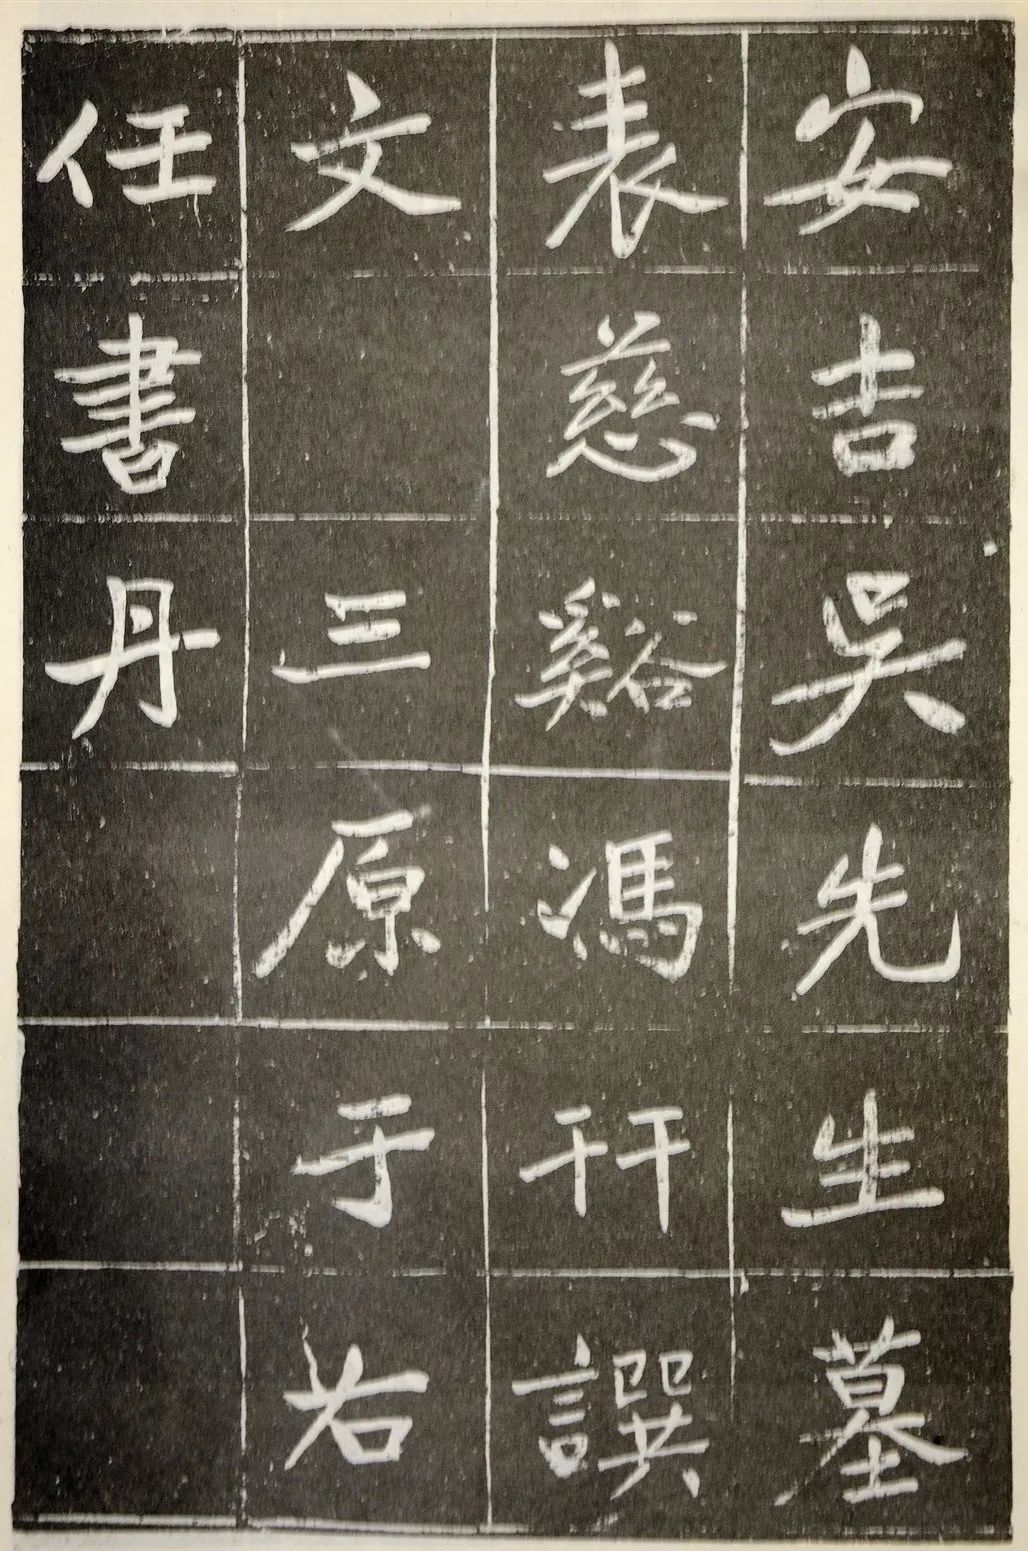 安吉吳先生墓
表慈谿馮幵譔
文三原于右
任書丹